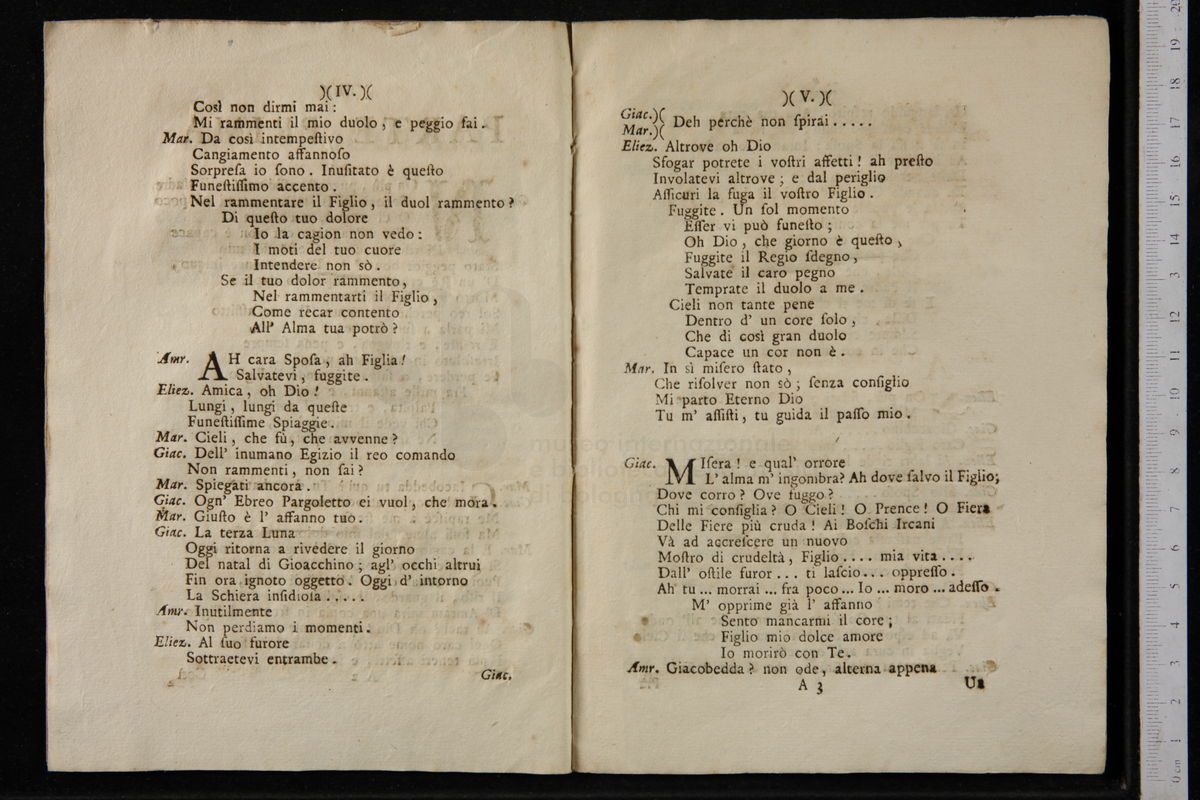 )( IV. )(
Così non dirmi mai :
Mi rammenti il mio duolo , e peggio fai .
Mar. Da così intempeſtivo
Cangiamento affannoſo
Sorpreſa io ſono . Inuſitato è queſto
Funeſtiſſimo accento .
Nel rammentare il Figlio , il duol rammento ?
Di queſto tuo dolore
Io la cagion non vedo :
I moti del tuo cuore
Intendere non sò .
Se il tuo dolor rammento ,
Nel rammentarti il Figlio ,
Come recar contento
All' Alma tua potrò ?
Amr. AH cara Spoſa , ah Figlia !
Salvatevi , fuggite .
Eliez. Amica , oh Dio !
Lungi , lungi da queſte
Funeſtiſſime Spiaggie .
Mar. Cieli , che fù , che avvenne ?
Giac. Dell' inumano Egizio il reo comando
Non rammenti , non ſai ?
Mar. Spiegati ancora .
Giac. Ogn' Ebreo Pargoletto ei vuol , che mora .
Mar. Giuſto è l' affanno tuo .
Giac. La terza Luna
Oggi ritorna a rivedere il giorno
Del natal di Gioacchino ; agl' occhi altrui
Fin ora ignoto oggetto . Oggi d' intorno
La Schiera inſidioſa . . . . .
Amr. Inutilmente
Non perdiamo i momenti .
Eliez. Al ſuo furore
Sottraetevi entrambe .
Giac.
)( V. )(
Giac.)(
Mar.)( Deh perchè non ſpirai . . . . .
Eliez. Altrove oh Dio
Sfogar potrete i voſtri affetti ! ah preſto
Involatevi altrove ; e dal periglio
Aſſicuri la fuga il voſtro Figlio .
Fuggite . Un ſol momento
Eſſer vi può funeſto ;
Oh Dio , che giorno è queſto ,
Fuggite il Regio ſdegno ,
Salvate il caro pegno
Temprate il duolo a me .
Cieli non tante pene
Dentro d' un core ſolo ,
Che di così gran duolo
Capace un cor non è .
Mar. In sì miſero ſtato ,
Che riſolver non sò ; ſenza conſiglio
Mi parto Eterno Dio
Tu m' aſſiſti , tu guida il paſſo mio .
Giac. MIſera ! e qual' orrore
L' alma m' ingombra? Ah dove ſalvo il Figlio;
Dove corro ? Ove fuggo ?
Chi mi conſiglia ? O Cieli ! O Prence ! O Fiera
Delle Fiere più cruda ! Ai Boſchi Ircani
Và ad accreſcere un nuovo
Moſtro di crudeltà , Figlio . . . . mia vita . . . .
Dall' oſtile furor . . . ti laſcio . . . oppreſſo .
Ah tu ... morrai ... fra poco ... Io ... moro ... adeſſo .
M' opprime già l' affanno
Sento mancarmi il core ;
Figlio mio dolce amore
Io morirò con Te .
Amr. Giacobedda ? non ode , alterna appena
A 3 Ua
museo internazionale